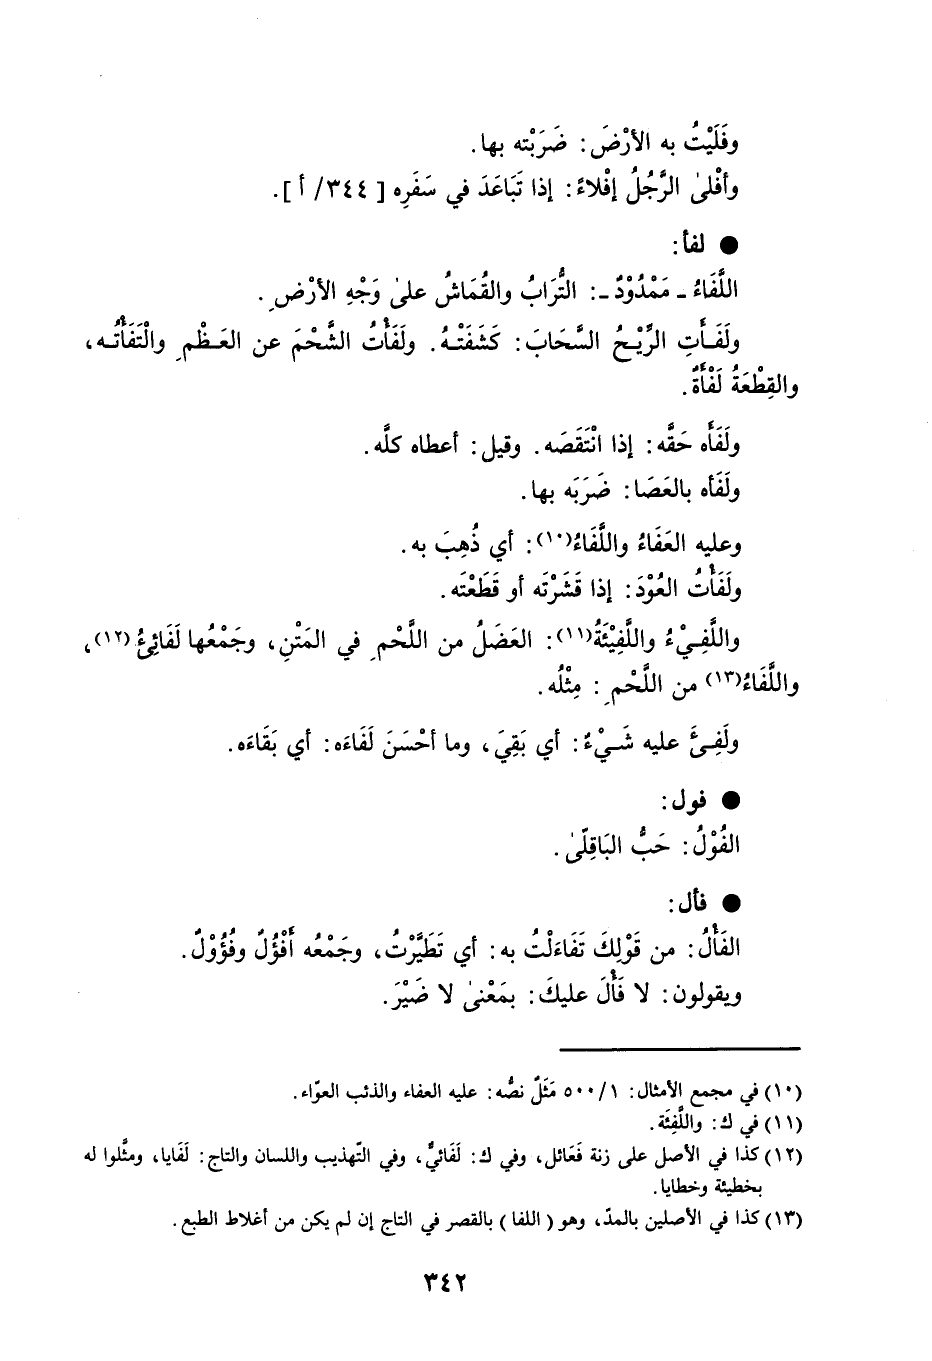 وفَلَيْتُ به الأرْضَ: ضَرَبْته بها.
وأفْلىٰ الرَّجُلُ إفْلاءً: إذا تَبَاعَدَ في سَفَرِه [٣٤٤/ أ].
● لفأ:
اللَّفَاءُ ـ مَمْدُوْدٌ ـ: التُّرَابُ والقُمَاشُ علىٰ وَجْهِ الأرْضِ.
ولَفَأَتِ الرِّيْحُ السَّحَابَ: كَشَفَتْهُ. ولَفَأْتُ الشَّحْمَ عن العَظْمِ والْتَفَأْتُه،
والقِطْعَةُ لَفْأَةٌ.
ولَفَأَه حَقَّه: إذا انْتَقَصَه. وقيل: أعطاه كلَّه.
ولَفَأه بالعَصَا: ضَرَبَه بها.
وعليه العَفَاءُ واللَّفَاءُ(١٠): أي ذُهِبَ به.
ولَفَأْتُ العُوْدَ: إذا قَشَرْتَه أو قَطَعْتَه.
واللَّفِيْءُ واللَّفِيْئَةُ(١١): العَضَلُ من اللَّحْمِ في المَتْنِ، وجَمْعُها لَفَائِئُ(١٢)،
واللَّفَاءُ(١٣) من اللَّحْمِ: مِثْلُه.
ولَفِئَ عليه شَيْءٌ: أي بَقِيَ، وما أحْسَنَ لَفَاءَه: أي بَقَاءَه.
● فول:
الفُوْلُ: حَبُّ البَاقِلّىٰ.
● فأل:
الفَأْلُ: من قَوْلِكَ تَفَاءَلْتُ به: أي تَطَيَّرْتُ، وجَمْعُه أَفْؤُلٌ وفُؤُوْلٌ.
ويقولون: لا فَأْلَ عليكَ: بمَعْنىٰ لا ضَيْرَ.
(١٠) في مجمع الأمثال: ٥٠٠/١ مَثَلٌ نصُّه: عليه العفاء والذئب العوّاء.
(١١) في ك: واللَّفِئَة.
(١٢) كذا في الأصل على زنة فَعَائل، وفي ك: لَفَائيُّ، وفي التّهذيب واللسان والتاج: لَفَايا، ومثَّلوا له
بخطيئة وخطايا.
(١٣) كذا في الأصلين بالمدّ، وهو (اللفا) بالقصر في التاج إن لم يكن من أغلاط الطبع.
٣٤٢